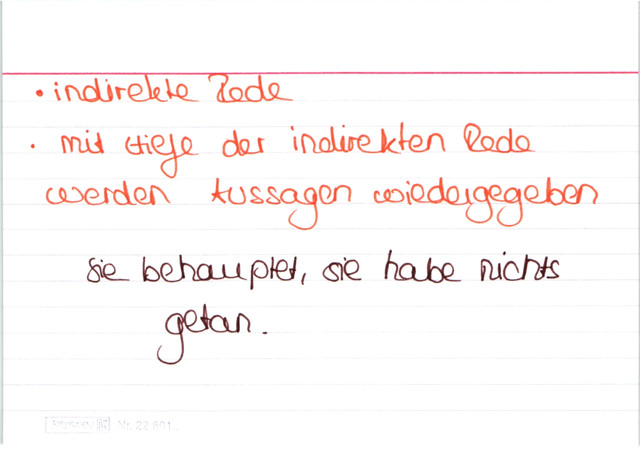 • indirekte Rede
• mit Hilfe der indirekten Rede
werden Aussagen wiedergegeben
sie behauptet, sie habe nichts
getan.
Nr. 22 601